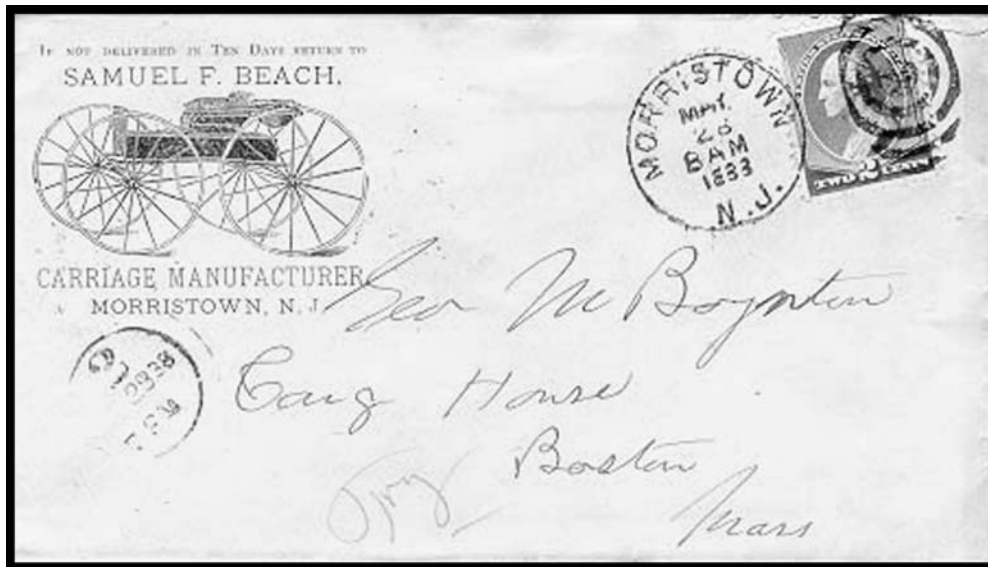 IF NOT DELIVERED IN TEN DAYS RETURN TO
SAMUEL F. BEACH,
CARRIAGE MANUFACTURER,
MORRISTOWN, N. J.
MORRISTOWN
MAY.
28
8 AM
1883
N.J.
TWO 2 CENTS
Geo M Boynton
House
Boston
Mass